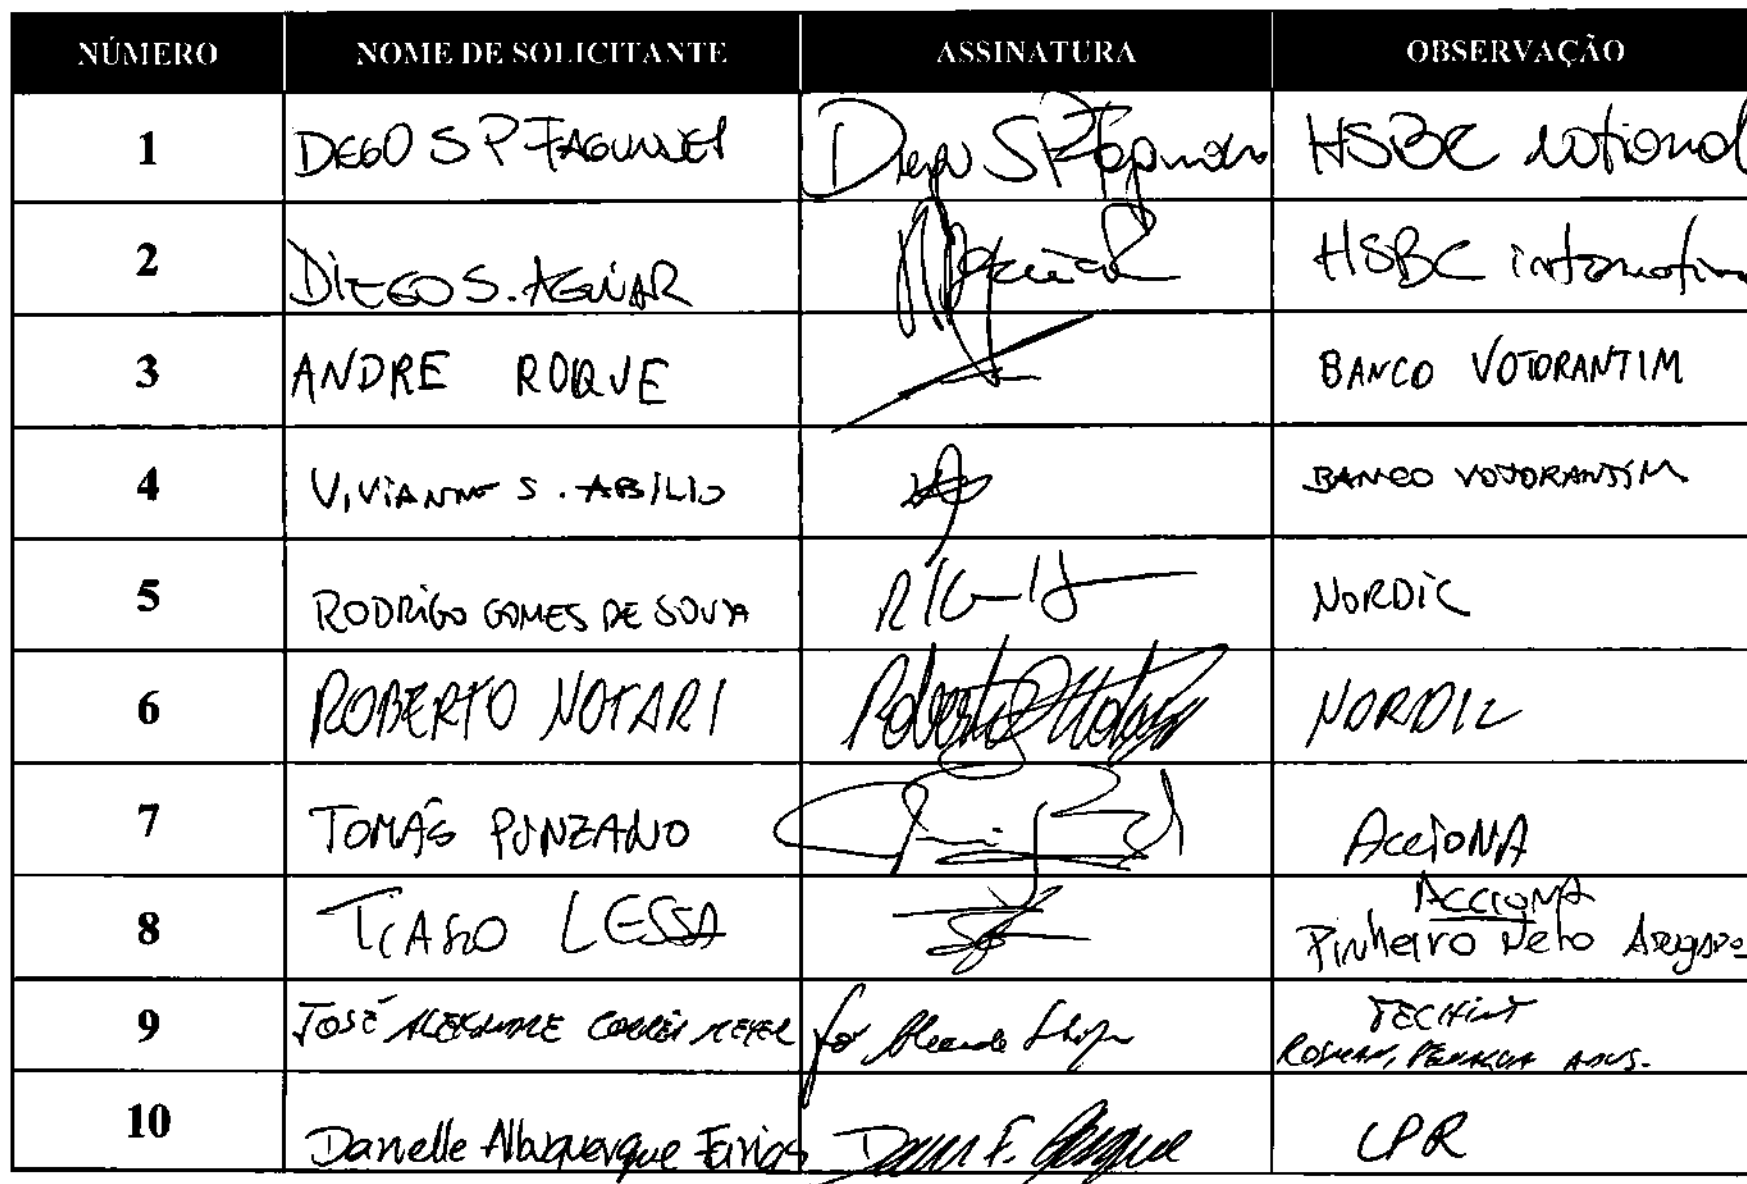 NÚMERO NOME DE SOLICITANTE ASSINATURA OBSERVAÇÃO
1 DIEGO S P FAGUNDES Diego S P Fagundes HSBC national
2 DIEGO S. AGUIAR HSBC
3 ANDRE ROQUE BANCO VOTORANTIM
4 VIVIANNE S. ABÍLIO BANCO VOTORANTIM
5 RODRIGO GOMES DE SOUZA NORDIC
6 ROBERTO NOTARI Roberto Notari NORDIC
7 TOMÁS PUNZANO ACCIONA
8 TIAGO LESSA ACCIONA
Pinheiro Neto
9 JOSÉ ALEXANDRE CORRÊA MEYER TECHINT
10 Danielle Albuquerque Farias CPR